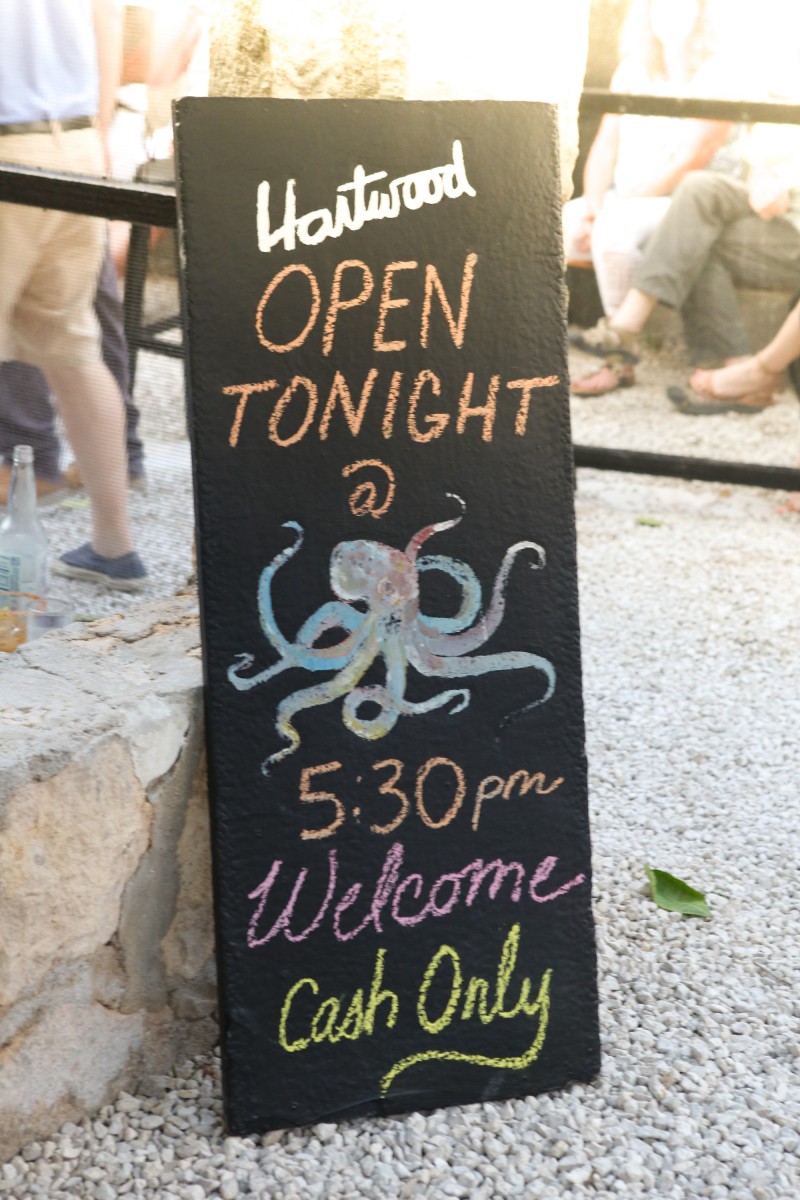 Hartwood
OPEN
TONIGHT
@
5:30pm
Welcome
Cash Only